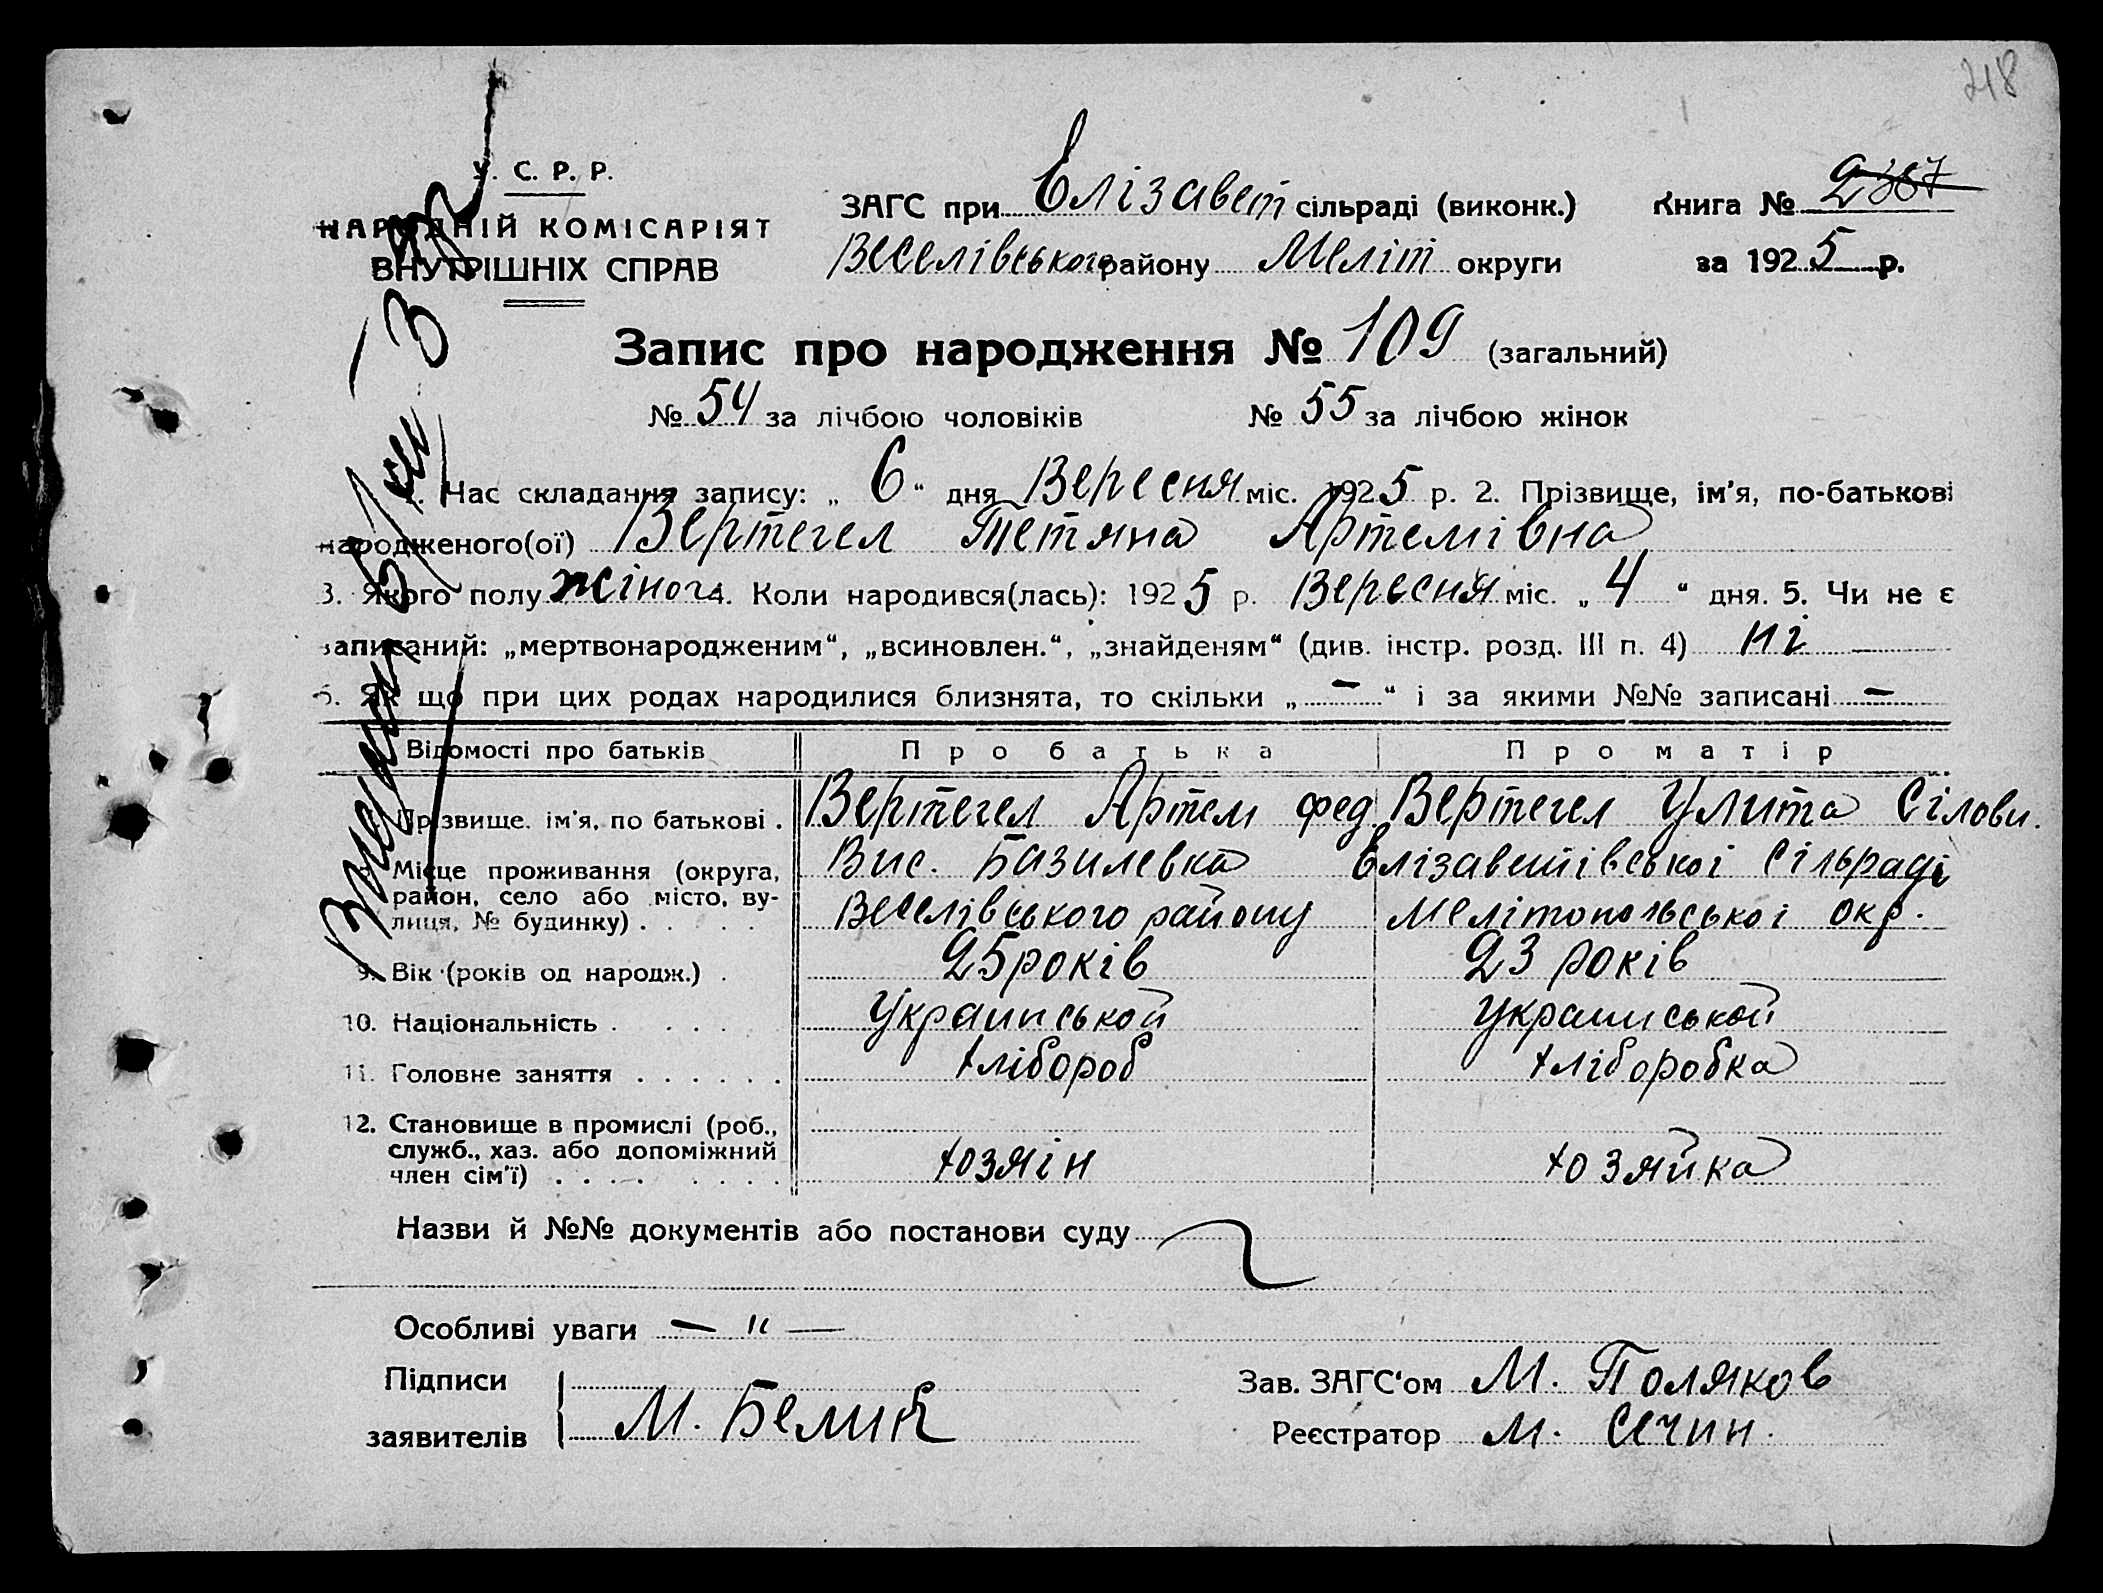 218
У. С. Р. Р.
НАРОДНІЙ КОМІСАРІЯТ
ВНУТРІШНІХ СПРАВ
ЗАГС при Елізавет сільраді (виконк.)
Книга №
Веселівського району Меліт округи
за 1925 р.
Запис про народження № 109 (загальний)
№ 54 за лічбою чоловіків № 55 за лічбою жінок
1. Час складання запису: „ 6 “ дня Вересня міс. 1925 р. 2. Прізвище, ім'я, по-батькові
народженого(ої) Вертегел Тетяна Артемівна
3. Якого полу жіног 4. Коли народився(лась): 1925 р. Вересня міс. „ 4 “ дня. 5. Чи не є
записаний: „мертвонародженим“, „всиновлен.“, „знайденям“ (див. інстр. розд. III п. 4) ні
6. Як що при цих родах народилися близнята, то скільки „ — “ і за якими №№ записані —
Відомості про батьків Про батька Про матір
Прізвище, ім'я, по батькові . Вертегел Артем фед Вертегел Улита Сілови.
8. Місце проживання (округа, Вис. Базилевка Елізаветівської сільраді
район, село або місто, ву-
лиця, № будинку) . . . . Веселівського району Мелітопольської окр.
9. Вік (років од народж.) . 25 років 23 років
10. Національність . . . . Украинськой Украинськой
11. Головне заняття . . . . . . хлібороб хліборобка
12. Становище в промислі (роб.,
служб., хаз. або допоміжний
член сім'ї) . . . . . . . . хозяін хозяйка
Назви й №№ документів або постанови суду
Особливі уваги — „ —
Підписи
заявителів М. Белик
Зав. ЗАГС'ом М. Поляков
Реєстратор М. Сечин.